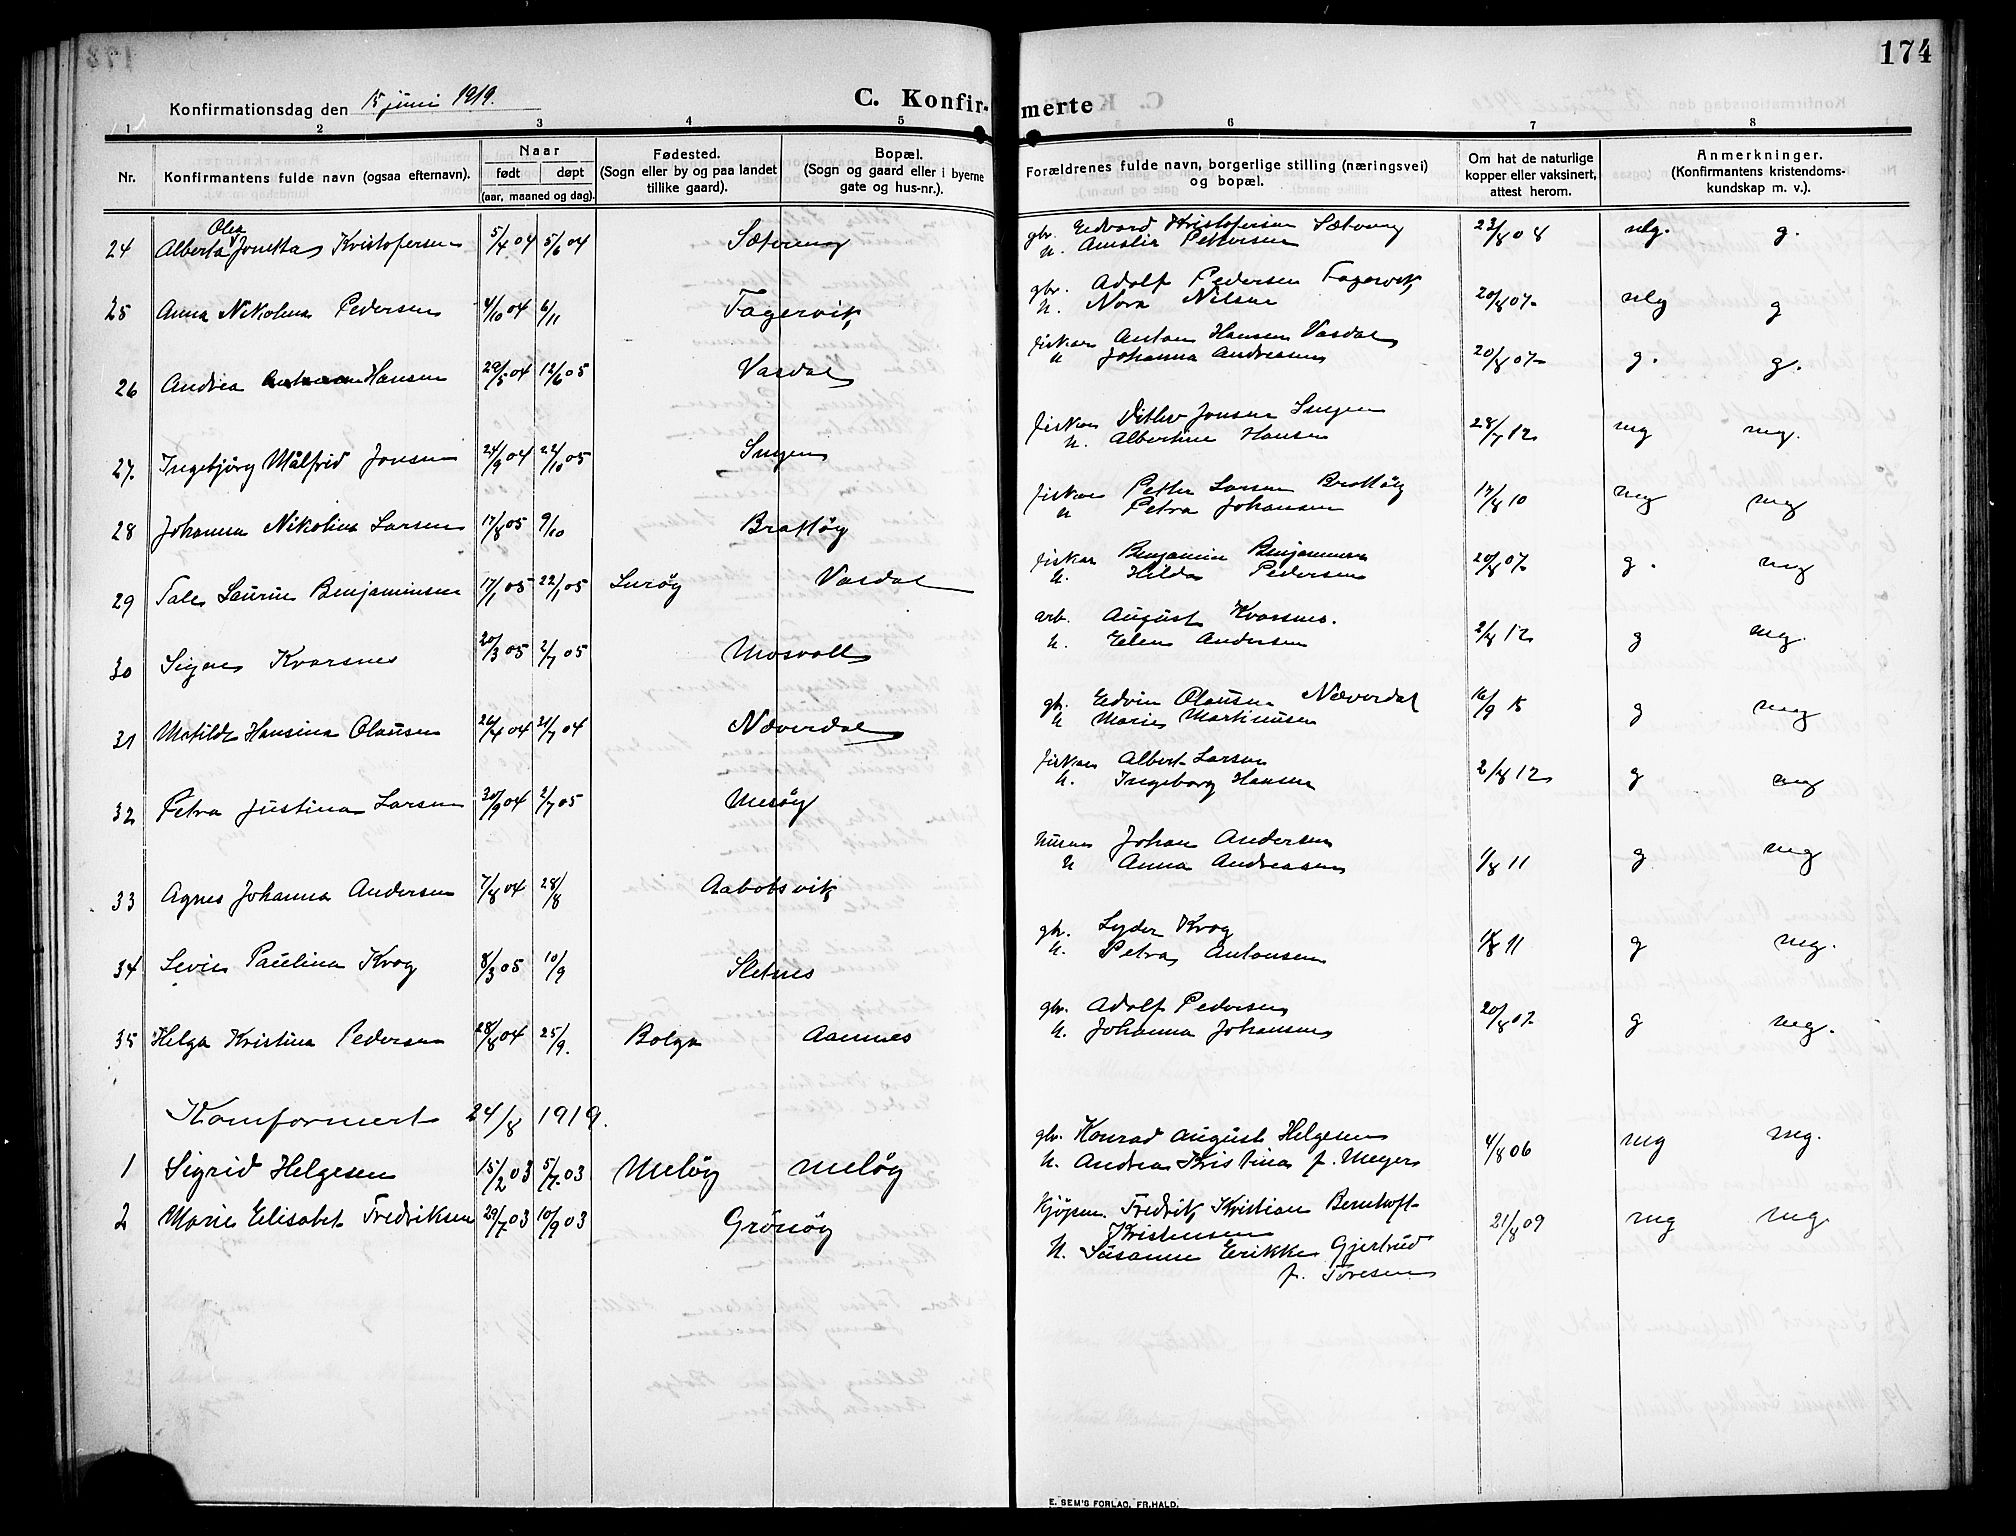 174
Konfirmationsdag den 15 juni 1919.
C. Konfir- merte
1 2 3 4 5 6 7 8
Nr.
Konfirmantens fulde navn (ogsaa efternavn).
Naar
født døpt
(aar, maaned og dag).
Fødested.
(Sogn eller by og paa landet
tillike gaard).
Bopæl.
(Sogn og gaard eller i byerne
gate og hus-nr.).
Forældrenes fulde navn, borgerlige stilling (næringsvei)
og bopæl.
Om hat de naturlige
kopper eller vaksinert,
attest herom.
Anmerkninger.
(Konfirmantens kristendoms-
kundskap m. v.).
Olea
24 Alberta Jonetta Kristofersen 5/4 04 5/6 04 Sætvung
gbr. Edvard Kristofersen Sætvung 23/8 08 nlg. g.
h. Amalie Pettersen
25 Anna Nikolina Pedersen 4/10 04 6/11 Fagervik
gbr. Adolf Pedersen Fagervik 20/8 07 nlg g
h. Nora Nilsen
26 Andrea Hansen 29/5 04 12/6 05 Vasdal
fisker Anton Hansen Vasdal 20/8 07 g. g.
h Johanna Andreasen
27. Ingebjørg Målfrid Jonsen 24/9 04 22/10 05 Sungen
fisker Ditlev Jonsen Sungen 28/7 12 mg mg.
h. Albertine Hansen
28 Johanna Nikolina Larsen 17/8 05 9/10 Brattøy
fisker Petter Larsen Brattøy 17/8 10 mg mg
h Petra Johansen
29 Tale Laurine Benjaminsen 17/1 05 22/1 05 Lurøy Vasdal
fisker Benjamin Benjaminsen 20/8 07 g. mg
h. Hilda Pedersen
30 Signe Kvarsnes 20/3 05 2/7 05 Mosvoll
arb. August Kvarsnes. 2/8 12 g mg.
h. Elen Andersen
31 Matilde Hansina Olausen 26/4 04 21/7 04 Næverdal
gbr. Edvin Olausen Næverdal 16/9 15 g mg
h Marie Martinusen
32 Petra Justina Larsen 30/9 04 2/7 05 Mesøy
fisker Albert Larsen 2/8 12 g mg
h. Ingeborg Hansen
33 Agnes Johanna Andersen 7/8 04 28/8 Aabotsvik
murer Johan Andersen 1/8 11 g mg
h Anna Andreassen
34 Levie Paulina Krog 8/3 05 10/9 Sletnes
gbr. Lyder Krog 1/8 11 g mg.
h. Petra Antonsen
35 Helga Kristina Pedersen 28/8 04 25/9. Bolga Aamnes
gbr. Adolf Pedersen 20/8 07 g mg.
h. Johanna Johansen
Komformert 24/8 1919.
1 Sigrid Helgesen 15/2 03 5/7 03 Meløy Meløy
gbr. Konrad August Helgesen 4/8 06 mg mg.
h. Andrea Kristina f. Meyer
2 Marie Elisabet Fredriksen 29/7 03 10/9 03 Grønøy
Kjøpm. Fredrik Kristian Bernhoft- 21/8 09 mg mg.
Kristensen
h. Susanne Erikke Gjertrud
f. Toresen
E. SEM'S FORLAG, FR.HALD.